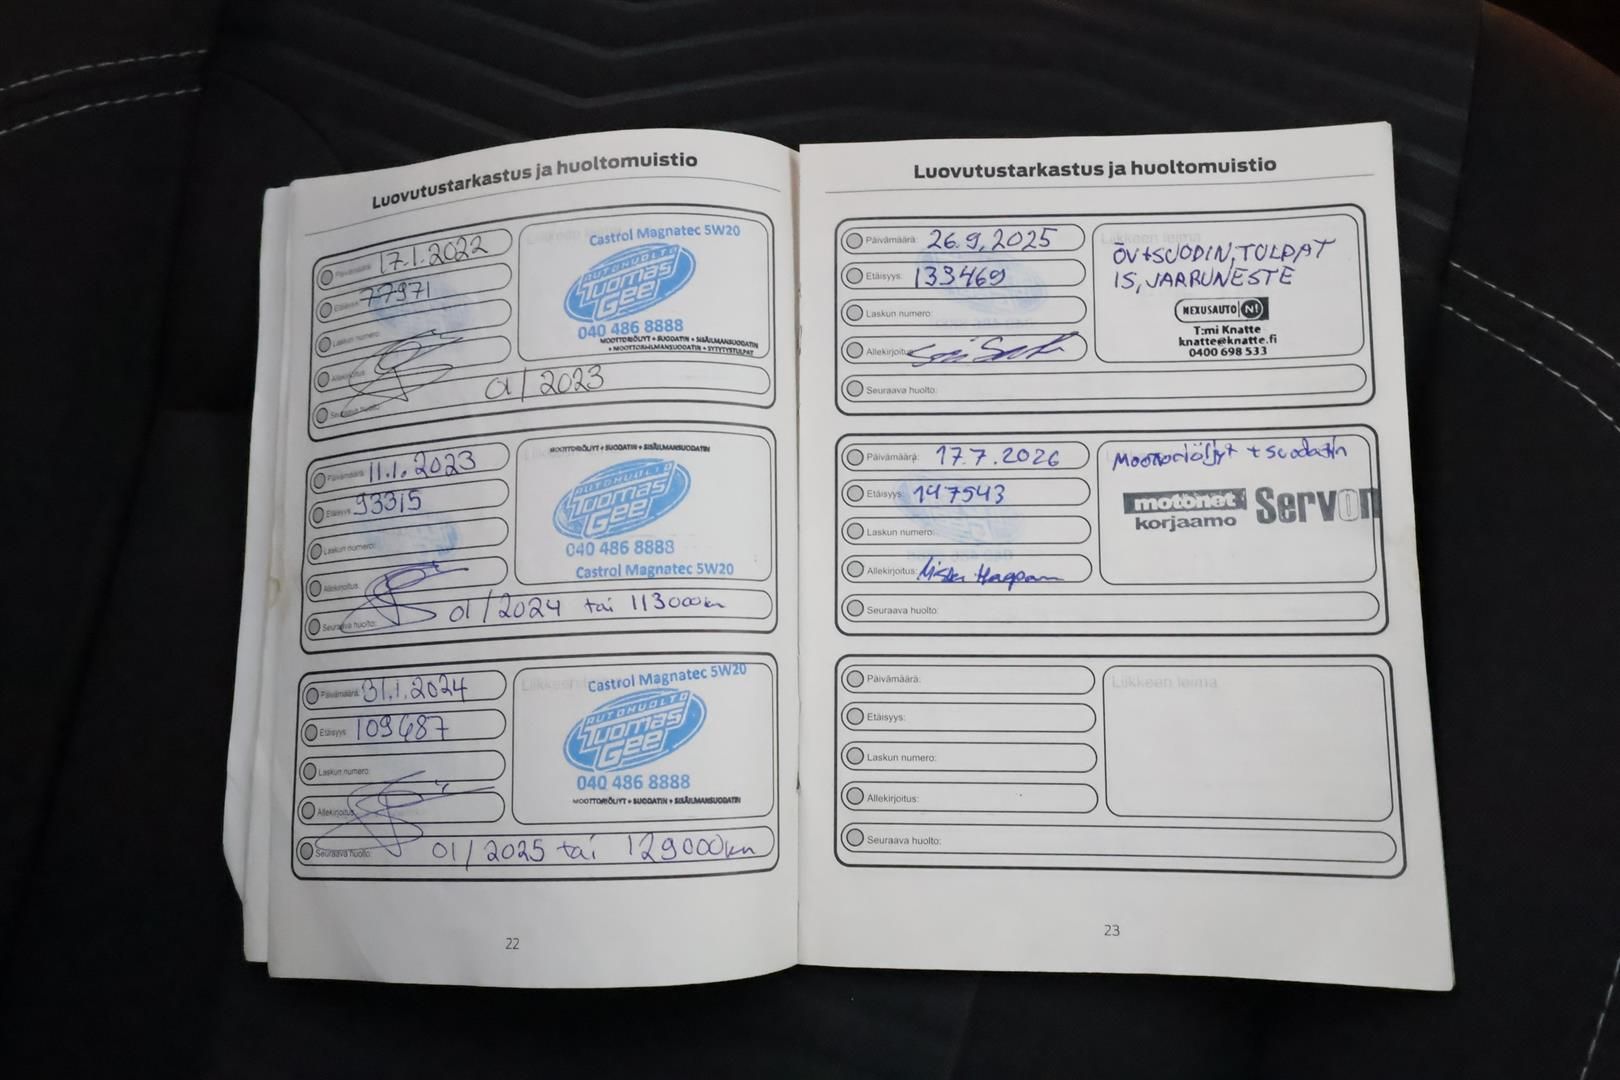 Luovutustarkastus ja huoltomuistio
Päivämäärä: 17.1.2022
Etäisyys: 77971
Laskun numero:
Allekirjoitus:
Seuraava huolto: 01/2023
Castrol Magnatec 5W20
AUTOHUOLTO
Tuomas
Gee!
040 486 8888
MOOTTORIÖLJYT + SUODATIN + SISÄILMANSUODATIN
+ MOOTTORIILMANSUODATIN + SYTYTYSTULPAT
Päivämäärä: 11.1.2023
Etäisyys: 93315
Laskun numero:
Allekirjoitus:
Seuraava huolto: 01/2024 tai 113000km
MOOTTORIÖLJYT + SUODATIN + SISÄILMANSUODATIN
AUTOHUOLTO
Tuomas
Gee!
040 486 8888
Castrol Magnatec 5W20
Päivämäärä: 31.1.2024
Etäisyys: 109687
Laskun numero:
Allekirjoitus:
Seuraava huolto: 01/2025 tai 129000km
Liikkeen leima
Castrol Magnatec 5W20
AUTOHUOLTO
Tuomas
Gee!
040 486 8888
MOOTTORIÖLJYT + SUODATIN + SISÄILMANSUODATIN
22
Luovutustarkastus ja huoltomuistio
Päivämäärä: 26.9.2025
Etäisyys: 133469
Laskun numero:
Allekirjoitus:
Seuraava huolto:
Liikkeen leima
ÖV+SUODIN, TULPAT
IS, JARRUNESTE
NEXUSAUTO N!
T:mi Knatte
knatte@knatte.fi
0400 698 533
Päivämäärä: 17.7.2026
Etäisyys: 147543
Laskun numero:
Allekirjoitus:
Seuraava huolto:
Moottoriöljyt + suodatin
motonet Servon
korjaamo
Päivämäärä:
Etäisyys:
Laskun numero:
Allekirjoitus:
Seuraava huolto:
Liikkeen leima
23